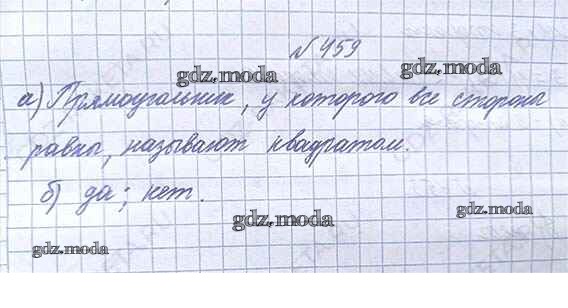 № 459
gdz.moda gdz.moda
а) Прямоугольник, у которого все стороны
равны, называют квадратом.
б) да; нет.
gdz.moda gdz.moda
gdz.moda